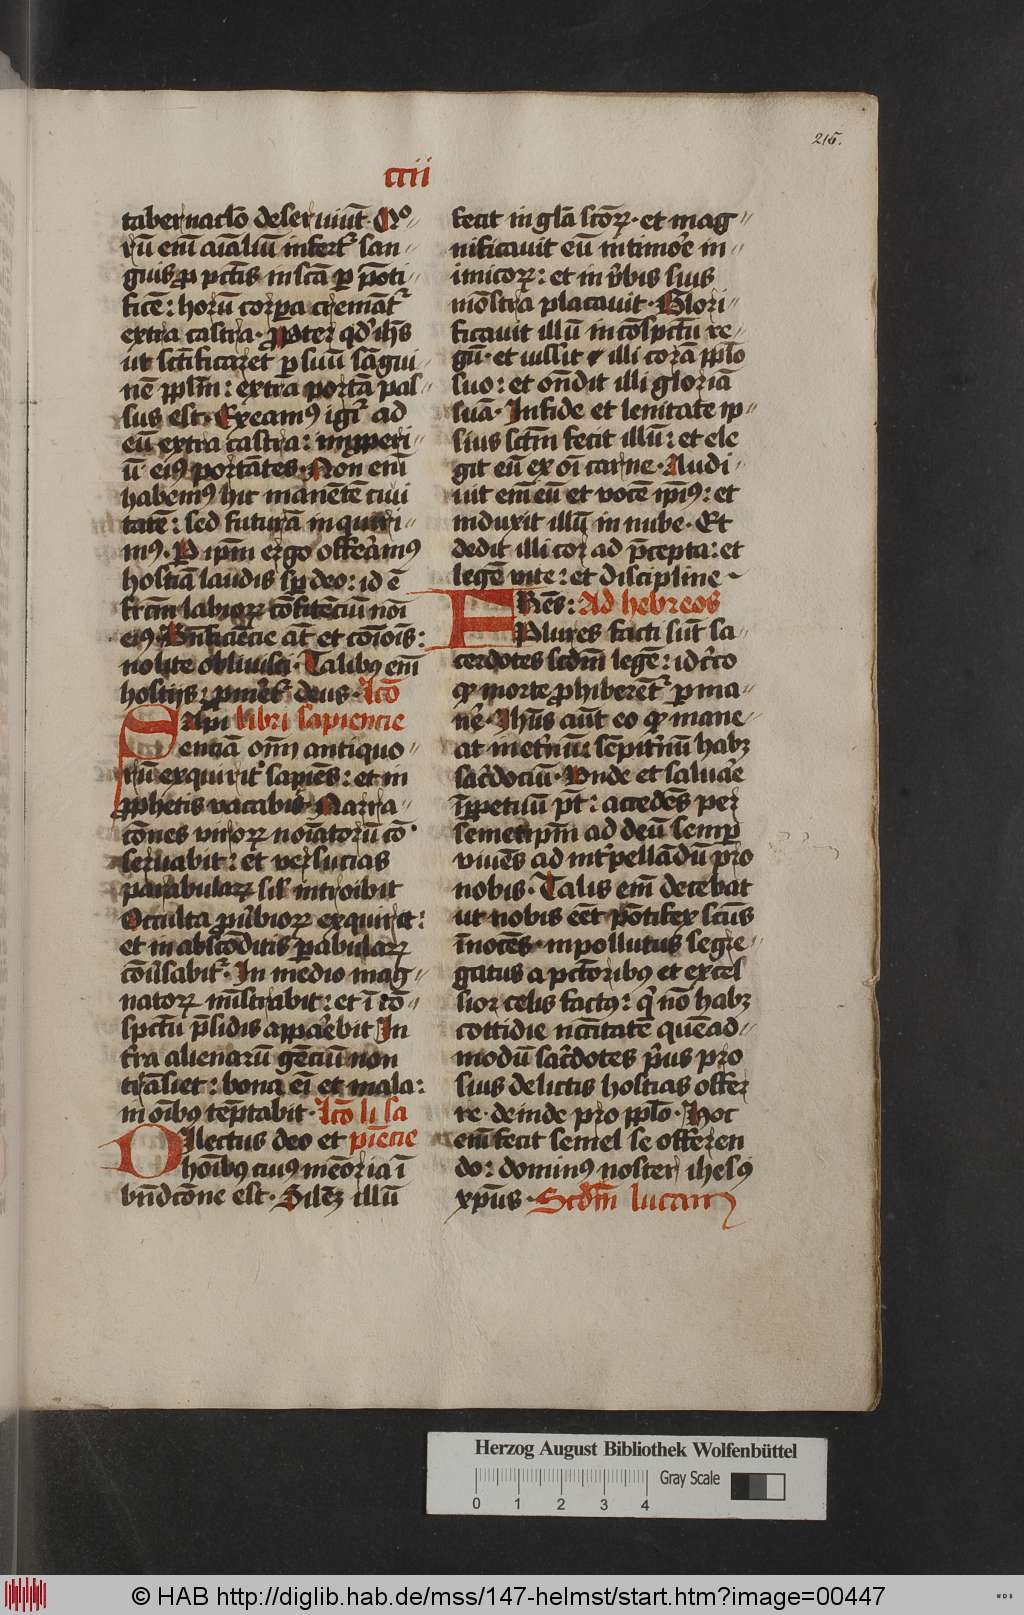 215.
ccii
tabernaclo deserviūt · Quo
rū eni aialiū infert̉ san
guis ꝓ pctis in scā ꝑ ponti
ficē : horū corpa cremāt̉
extra castra · Ꝓpter qd̉ ihs̄
ut sctificaret ꝑ suū sāgui
nē pplm̄ : extra portā pas
sus est · Exeamꝰ igit̉ ad
eū extra castra : imꝓperi
ū eiꝰ portātes · Non eni
habemꝰ hic manētē civi
tatē : sed futurā inquiri
mꝰ · P ipm̄ ergo offeramꝰ
hostiā laudis sp̄ deo : id ē
frcm̄ labioꝝ cōfitēciū noi
eiꝰ · Bn̄ficiēcie at̄ et coiōis :
nolite oblivisci · Talibꝰ em̄
hostijs : ꝓmeret̉ deus · Lcō
Sapi libri sapiencie
enciā om̄ antiquo
rū exquirit sapiēs : et in
ꝓphetis vacabit · Narra
cōnes viroꝝ noiatorū cō
servabit : et versucias
parabulaꝝ sil̉ introibit
Occulta ꝓverbioꝝ exquiret :
et in abscōditis ꝑabulaꝝ
cōversabit̉ · In medio mag
natoꝝ mistrabit : et ī cō
spctu p̄sidis apparebit In
tr̄a alienarū gēciū non
trāsiet : bona ei et mala :
in oībꝰ tēptabit · Lcō li sa
Dilectus deo et piēcie
hoībꝰ cuiꝰ memoria ī
bn̄dcōne est · Silēꝫ illū
fecit in gla sctoꝝ · et mag
nificavit eū in timore in
imicoꝝ : et in v̉bis suis
mōstra placavit · Glori
ficavit illū in cōspctu re
gū · et iussit illi corā pplo
suo : et ondit illi gloriā
suā · In fide et lenitate ip
sius sctm̄ fecit illū : et ele
git eū ex oi carne · Audi
vit em̄ eū et vocē ipiꝰ : et
induxit illū in nube · Et
dedit illi cor ad p̄cepta : et
legē vite : et discipline
FRēs : Ad hebreos
Plures facti sūt sa
cerdotes scdm̄ legē : idcrco
ꝙ morte ꝓhiberent̉ ꝑma
nere · Ihs̄ aūt eo ꝙ mane
at inetnū : sēpitnū habꝫ
sacdociū · Unde et salvare
īꝑpetuū pt̄ : accedēs per
semetipm̄ ad deū semꝑ
vivēs ad int̉pellādū pro
nobis · Talis em̄ decebat
ut nobis eēt pōtifex sctus
īnocēs · inpollutus segre
gatus a pctoribꝰ et excel
sior celis factꝰ : q̉ nō habꝫ
cottidie nc̄citatē quēad
modū sacdotes p̉us pro
suis delictis hostias offer
re · deinde pro pplo · Hoc
em̄ fecit semel se offeren
do : dominꝰ noster ihesꝰ
xpus · Scdm̄ lucam
Herzog August Bibliothek Wolfenbüttel
Gray Scale
0 1 2 3 4
© HAB http://diglib.hab.de/mss/147-helmst/start.htm?image=00447